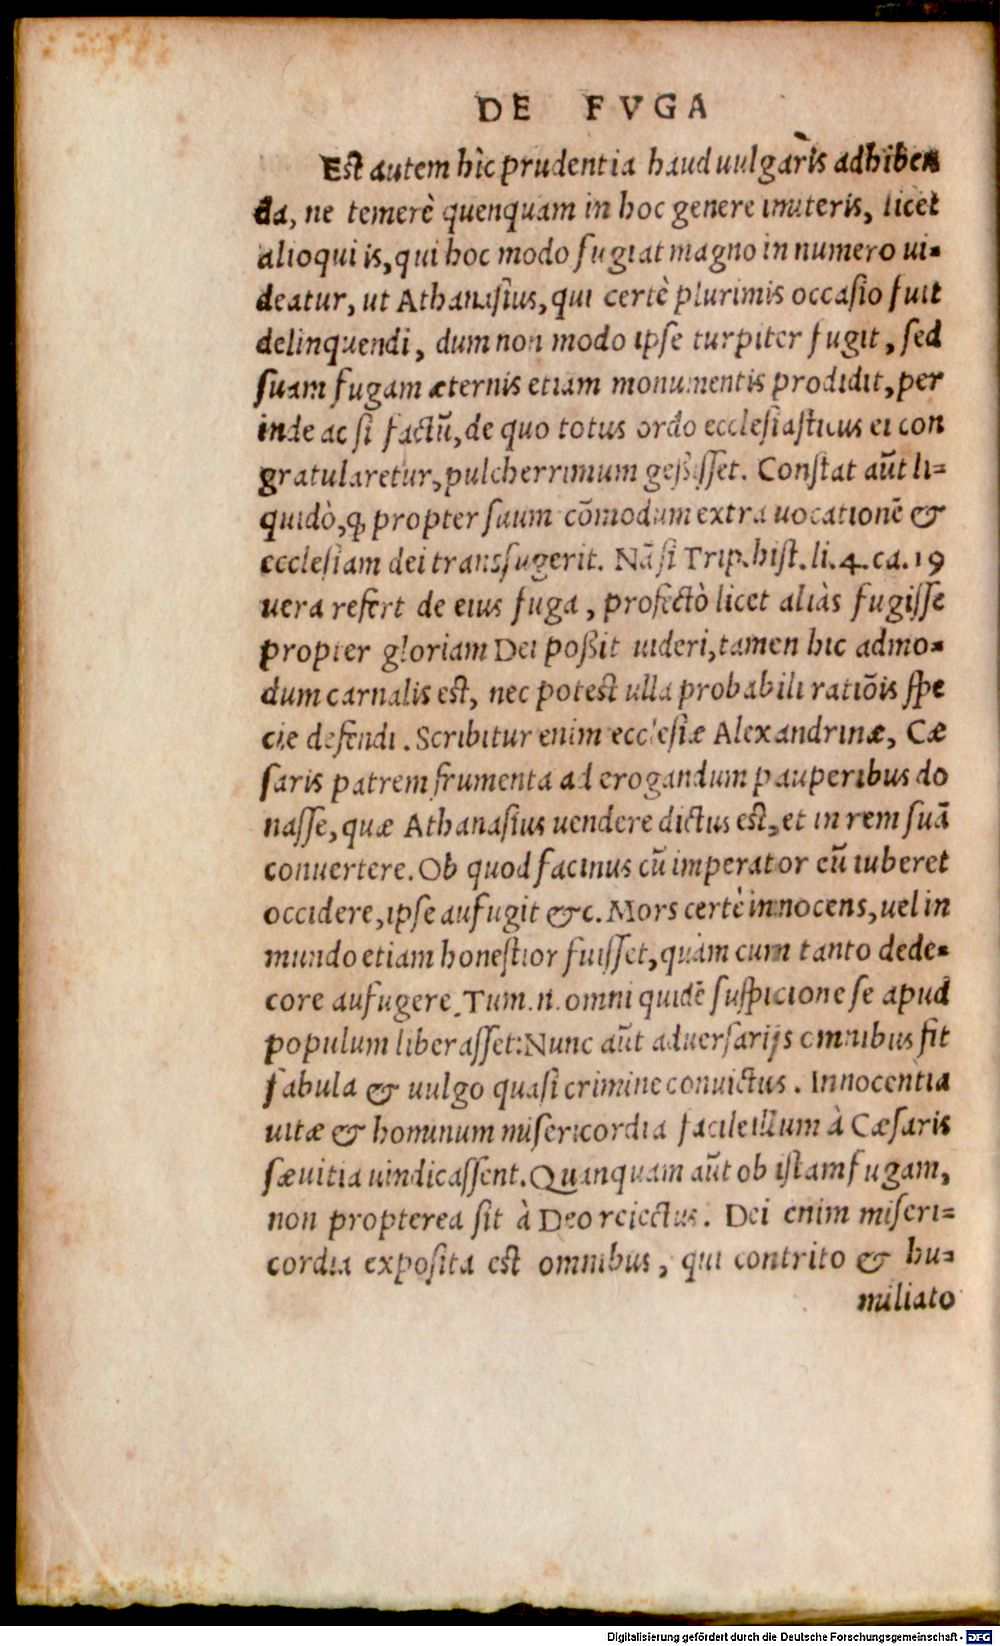 DE FVGA
Est autem hîc prudentia haud uulgaris adhiben
da, ne temerè quenquam in hoc genere imiteris, licet
alioqui is, qui hoc modo fugiat magno in numero ui-
deatur, ut Athanasius, qui certè plurimis occasio fuit
delinquendi, dum non modo ipse turpiter fugit, sed
suam fugam æternis etiam monumentis prodidit, per
inde ac si factū, de quo totus ordo ecclesiasticus ei con
gratularetur, pulcherrimum geßisset. Constat aūt li=
quidò, ꝙ propter suum cōmodum extra uocationē &
ecclesiam dei transfugerit. Nā si Trip. hist. li. 4. ca. 19
uera refert de eius fuga, profectò licet aliàs fugisse
propter gloriam Dei poßit uideri, tamen hic admo-
dum carnalis est, nec potest ulla probabili ratiōis spe
cie defendi. Scribitur enim ecclesiæ Alexandrinæ, Cæ
saris patrem frumenta ad erogandum pauperibus do
nasse, quæ Athanasius uendere dictus est, et in rem suā
conuertere. Ob quod facinus cū imperator eū iuberet
occidere, ipse aufugit &c. Mors certè innocens, uel in
mundo etiam honestior fuisset, quàm cum tanto dede-
core aufugere. Tum.n. omni quidē suspicione se apud
populum liberasset: Nunc aūt aduersarijs omnibus fit
fabula & uulgo quasi crimine conuictus. Innocentia
uitæ & hominum misericordia facile illum à Cæsaris
sæuitia uindicassent. Quanquam aūt ob istam fugam,
non propterea sit à Deo reiectus. Dei enim miseri=
cordia exposita est omnibus, qui contrito & hu=
miliato
Digitalisierung gefördert durch die Deutsche Forschungsgemeinschaft - DFG